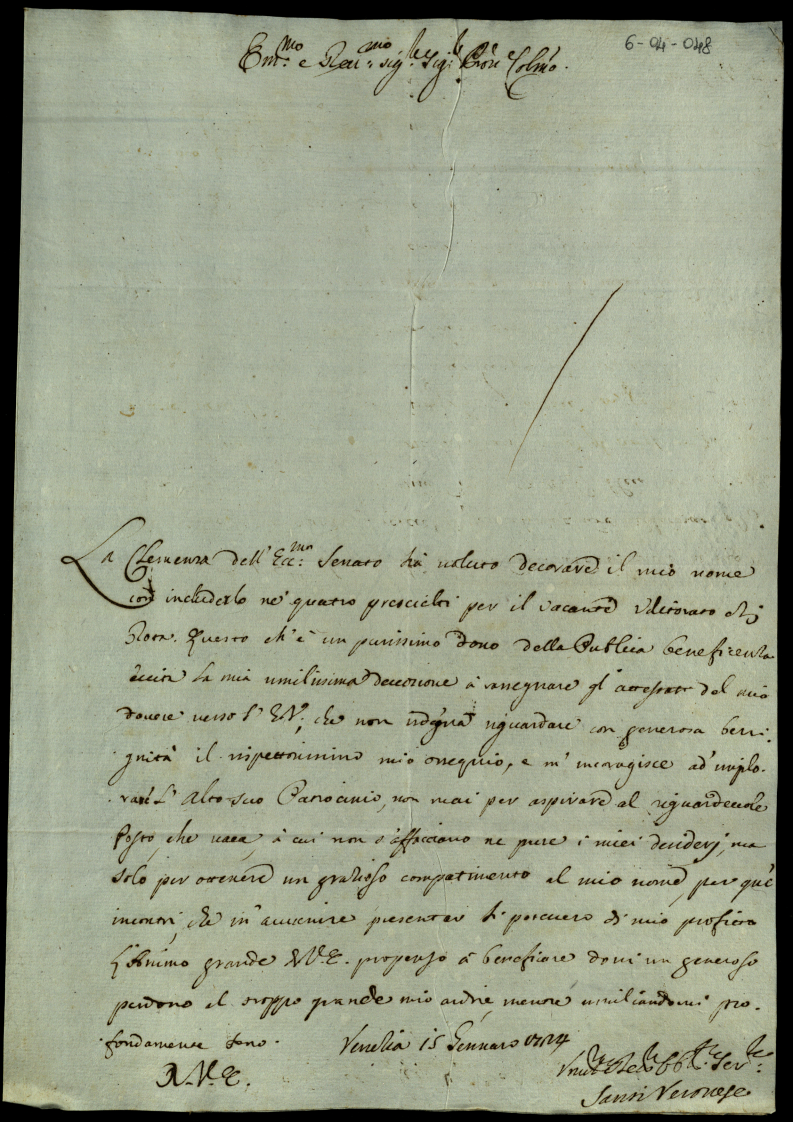 6-04-048
Em.mo e Rev.mo Sig.r Sig.r Pron Colmo.
La Clemenza dell' Ecc.mo Senato hà voluto decorare il mio nome
con includerlo ne' quatro prescielti per il vacante Uditorato di
Rota. Questo ch'è un purissimo dono della Publica beneficenza
eccita la mia umilissima devozione à rassegnare gl' attestati del mio
dovere verso l' E.V., che non isdegna riguardare con generosa beni-
gnità il rispettosissimo mio ossequio, e m' incoragisce ad' implo-
rare l' Alto suo Patrocinio, non mai per aspirare al riguardevole
Posto, che vaca, à cui non s'affacciano ne pure i miei desiderj, ma
solo per ottenere un grazioso compatimento al mio nome, per que
incontri, che in' avvenire presentar si potessero di mio profitto
L'Animo grande di V.E. propenso à beneficare doni un generoso
perdono al troppo grande mio ardire, mentre umiliandomi pro-
fondamente sono.
Venezia 15 Gennaro 1724
D. V. E.
Umil.mo Dev.mo Obb.mo Ser.re
Santi Veronese